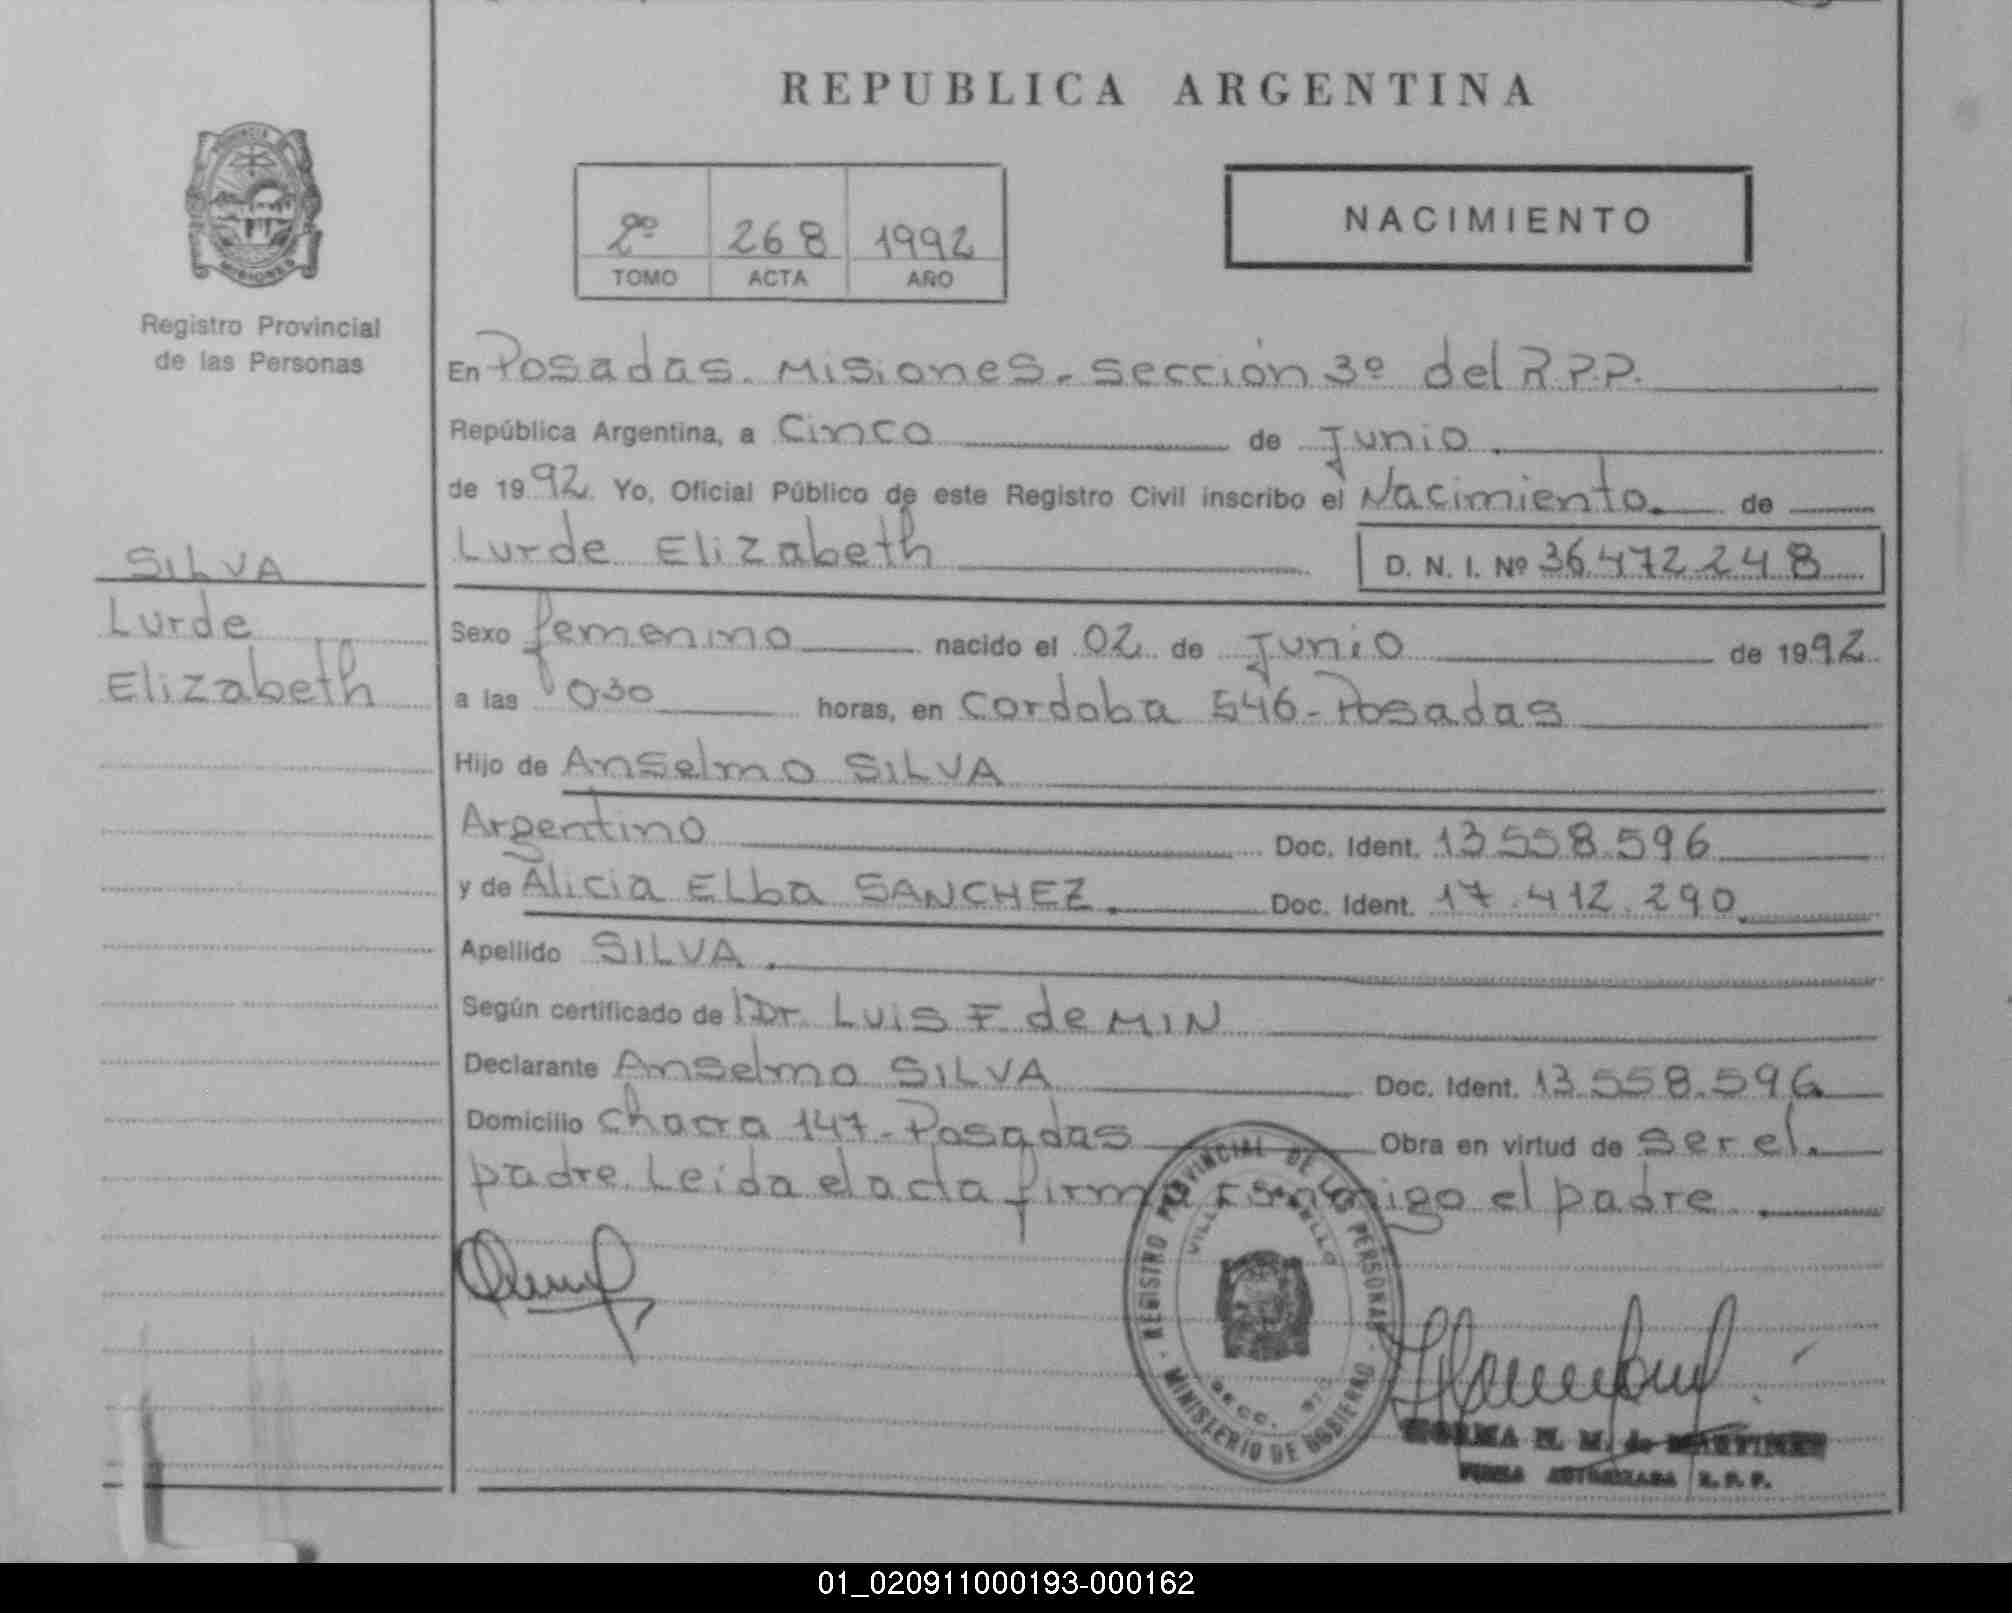 REPUBLICA ARGENTINA
PROVINCIA
MISIONES
Registro Provincial
de las Personas
2º 268 1992
TOMO ACTA AÑO
NACIMIENTO
En Posadas. Misiones. Sección 3º del R.P.P.
República Argentina, a Cinco de Junio
de 1992. Yo, Oficial Público de este Registro Civil inscribo el Nacimiento. de
Lurde Elizabeth D. N. I. Nº 36.472.248
SILVA
Lurde
Elizabeth
Sexo femenino nacido el 02 de Junio de 1992
a las 030 horas, en Cordoba 546 - Posadas
Hijo de Anselmo SILVA
Argentino Doc. Ident. 13.558.596
y de Alicia Elba SANCHEZ. Doc. Ident. 17.412.290.
Apellido SILVA.
Según certificado de Dr. Luis F. de MIN
Declarante Anselmo SILVA Doc. Ident. 13.558.596
Domicilio Chacra 147 - Posadas Obra en virtud de ser el
padre. Leida el acta firma conmigo el padre.
REGISTRO PROVINCIAL DE LAS PERSONAS
SECC.
MINISTERIO DE GOBIERNO
NORMA N. M. de MARTINEZ
FIRMA AUTORIZADA R. P. P.
01_020911000193-000162